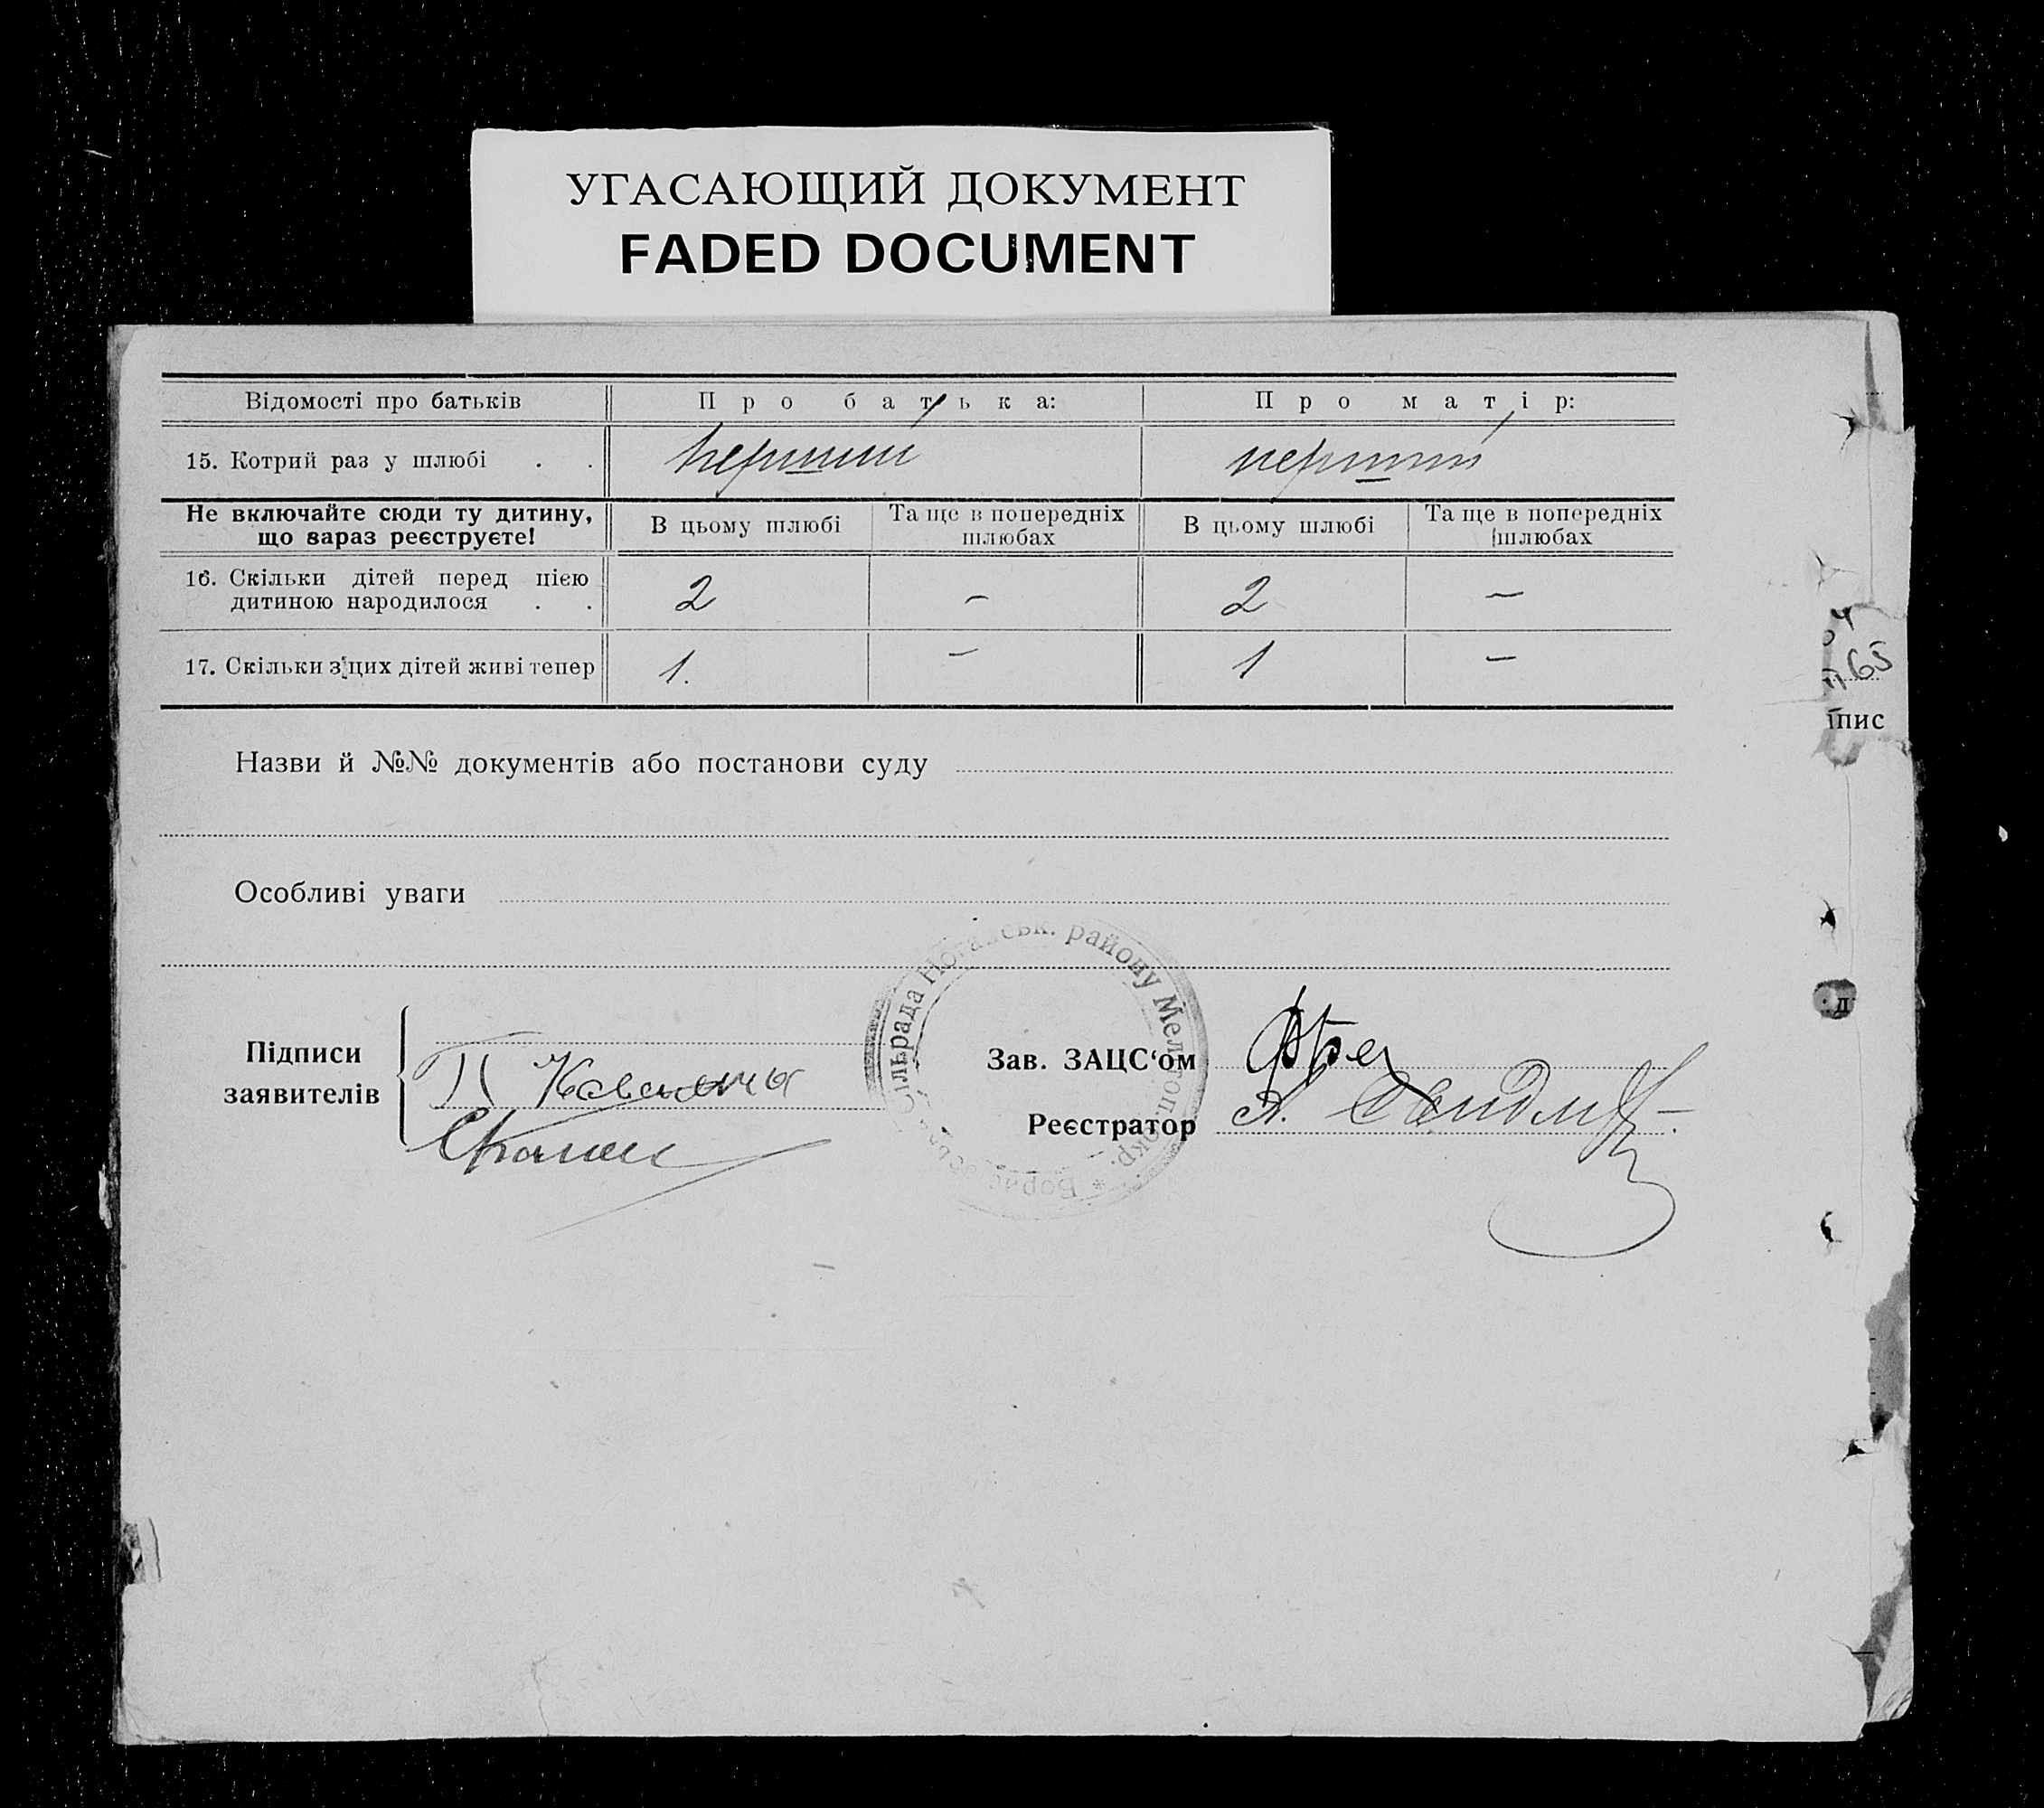 УГАСАЮЩИЙ ДОКУМЕНТ
FADED DOCUMENT
Відомості про батьків Про батька: Про матір:
15. Котрий раз у шлюбі . . перший перший
Не включайте сюди ту дитину, що зараз реєструєте! В цьому шлюбі Та ще в попередніх шлюбах В цьому шлюбі Та ще в попередніх шлюбах
16. Скільки дітей перед цією
дитиною народилося . . 2 – 2 –
17. Скільки з цих дітей живі тепер 1. – 1 –
65
пис
Назви й №№ документів або постанови суду
Особливі уваги
сільрада Ногайськ. району Мелітоп. окр. *
Підписи
заявителів
Зав. ЗАЦС‘ом
Реєстратор А.